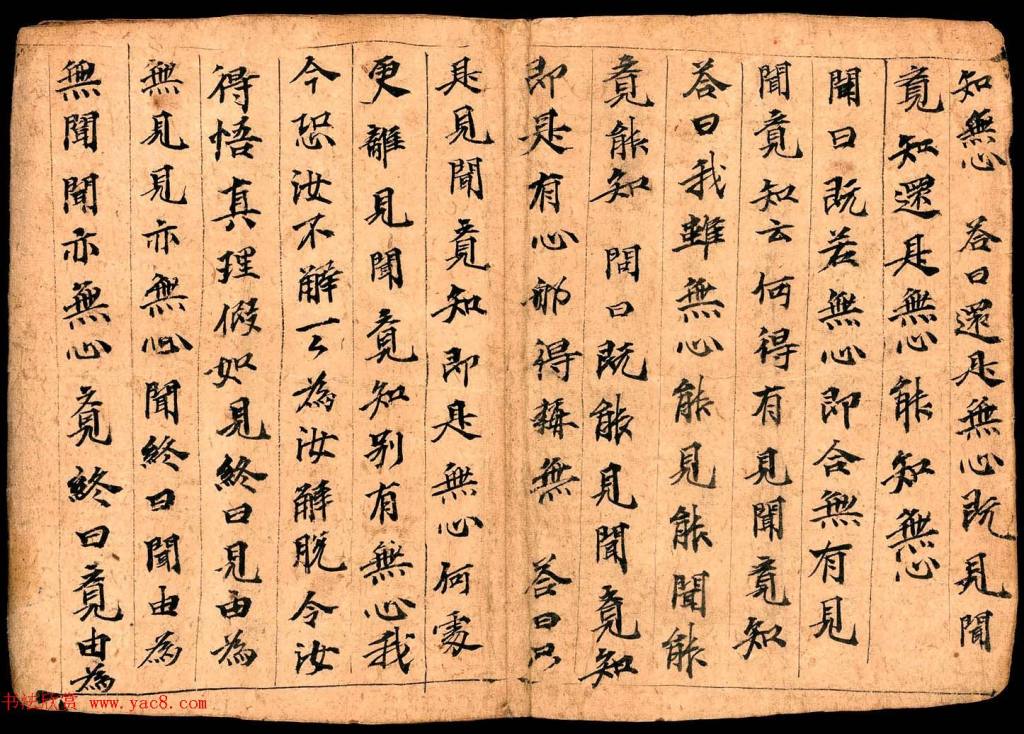 知無心　答曰還是無心既見聞
覺知還是無心能知無心
問曰既若無心即合無有見
聞覺知云何得有見聞覺知
答曰我雖無心能見能聞能
覺能知　問曰既能見聞覺知
即是有心那得稱無　答曰只
是見聞覺知即是無心何處
更離見聞覺知別有無心我
今恐汝不解一々為汝解脫令汝
得悟真理假如見終日見由為
無見見亦無心聞終日聞由為
無聞聞亦無心覺終日覺由為
书法欣赏 www.yac8.com